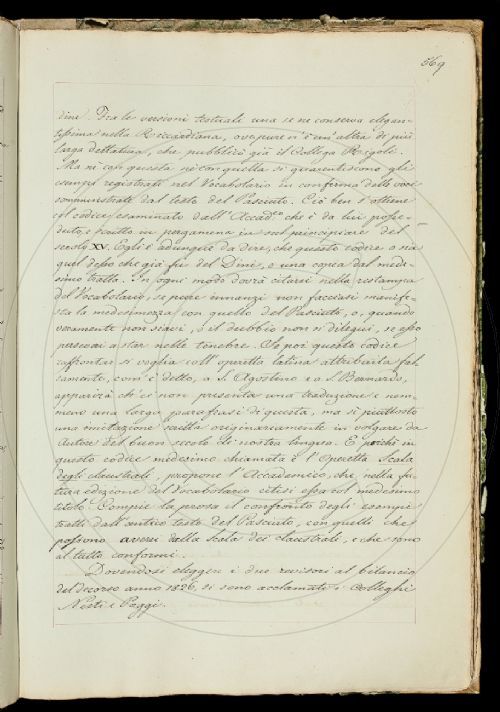 569
dine. Tra le versioni testuali una se ne conserva elegan-
tissima nella Riccardiana, ove pure n'è un'altra di più
larga dettatura, che pubblicò già il Collega Rigoli.
Ma nè con questa nè con quella si guarentiscono gli
esempj registrati nel Vocabolario in conferma delle voci
somministrate dal testo del Pasciuto. Ciò ben s'ottiene
col codice esaminato dall'Accad.co che è da lui posse-
duto, e scritto in pergamena in sul principiare del
secolo XV. Egli è adunque da dire, che questo codice o sia
quel desso che già fu del Dini, o una copia dal mede-
simo tratta. In ogni modo dovrà citarsi nella ristampa
del Vocabolario, se pure innanzi non facciasi manife-
sta la medesimezza con quello del Pasciuto, o, quando
veramente non siavi, o il dubbio non si dilegui, se esso
perseveri a star nelle tenebre. Se poi questo codice
raffrontar si voglia coll'operetta latina attribuita fal-
samente, com'è detto, a S. Agostino e a S. Bernardo,
apparirà ch'ei non presenta una traduzione e nem-
meno una larga parafrasi di questa, ma sì piuttosto
una imitazione scritta originariamente in volgare da
Autore del buon secolo di nostra lingua. E perchè in
questo codice medesimo chiamata è l'Operetta Scala
degli claustrali, propone l'Accademico, che nella fu-
tura edizione del Vocabolario citisi essa col medesimo
titolo. Compie la prosa il confronto degli esempi
tratti dall'antico testo del Pasciuto, con quelli che
possono aversi dalla Scala dei claustrali, e che sono
al tutto conformi.
Dovendosi eleggere i due revisori al bilancio
del decorso anno 1826, si sono acclamati i Colleghi
Nesti e Poggi.